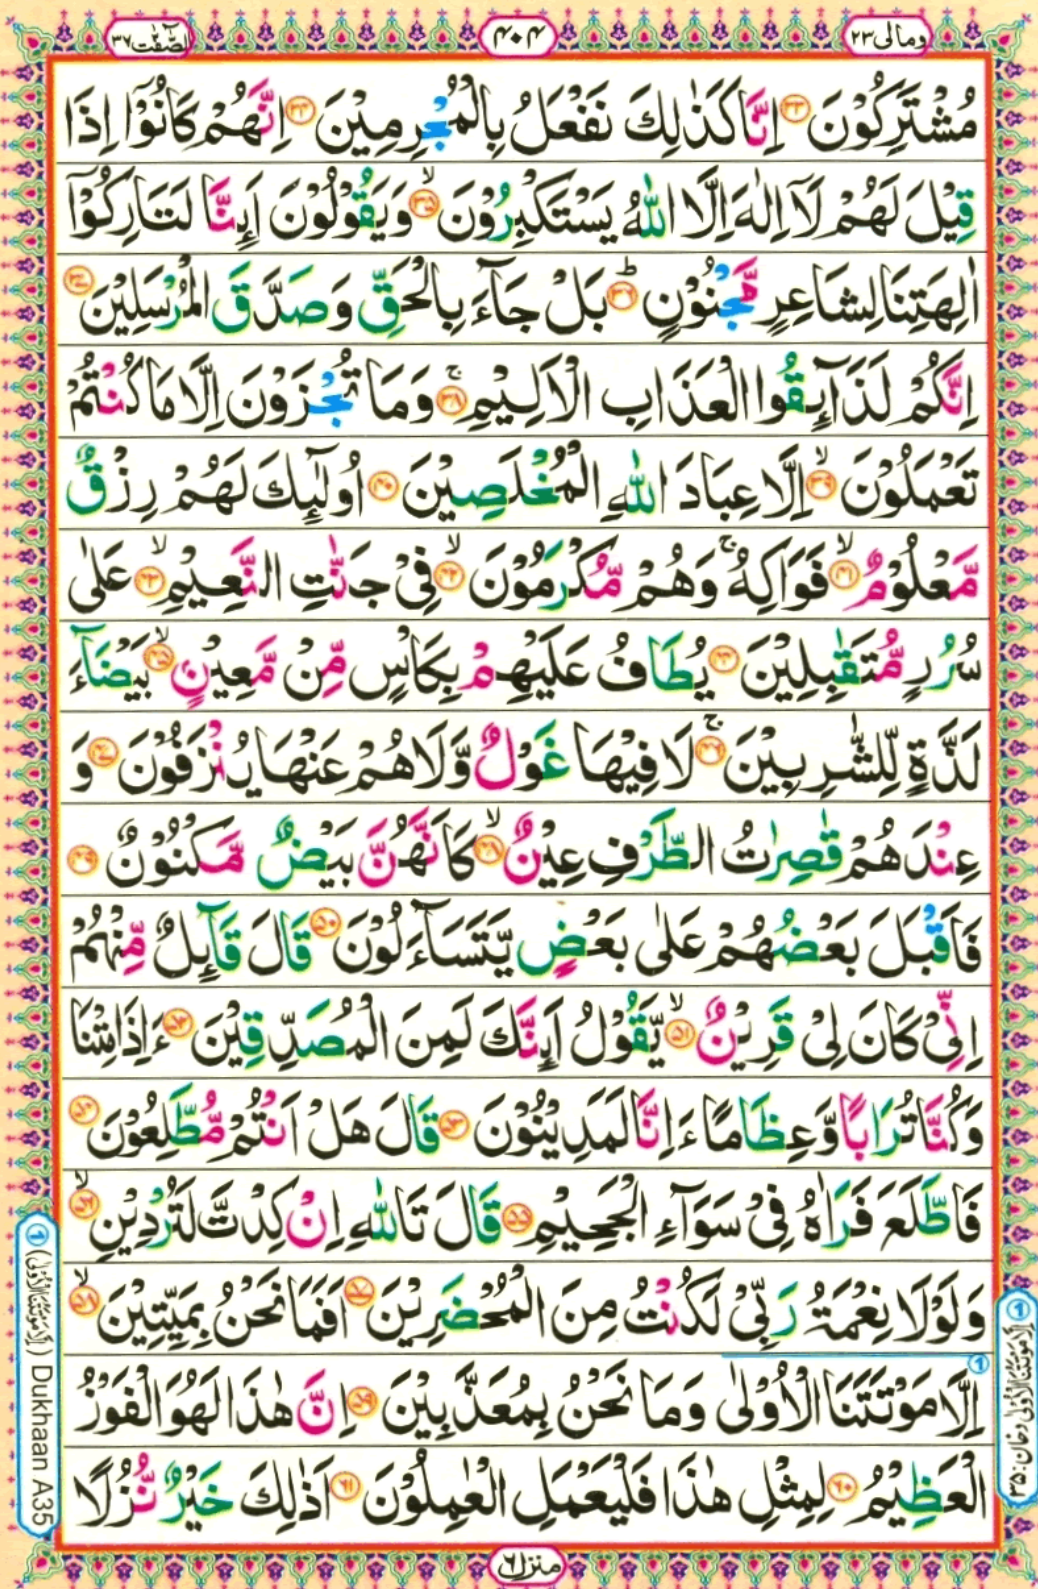 ومالی ۲۳
۴۰۴
الصّٰفّٰت ۳۷
مُشْتَرِكُوْنَ ۳۳ اِنَّا كَذٰلِكَ نَفْعَلُ بِالْمُجْرِمِيْنَ ۳۴ اِنَّهُمْ كَانُوْۤا اِذَا
قِيْلَ لَهُمْ لَاۤ اِلٰهَ اِلَّا اللّٰهُ يَسْتَكْبِرُوْنَ ۙ۳۵ وَيَقُوْلُوْنَ اَىِٕنَّا لَتَارِكُوْۤا
اٰلِهَتِنَا لِشَاعِرٍ مَّجْنُوْنٍ ؕ۳۶ بَلْ جَآءَ بِالْحَقِّ وَصَدَّقَ الْمُرْسَلِيْنَ ۳۷
اِنَّكُمْ لَذَآىِٕقُوا الْعَذَابِ الْاَلِيْمِ ۚ۳۸ وَمَا تُجْزَوْنَ اِلَّا مَا كُنْتُمْ
تَعْمَلُوْنَ ۙ۳۹ اِلَّا عِبَادَ اللّٰهِ الْمُخْلَصِيْنَ ۴۰ اُولٰٓىِٕكَ لَهُمْ رِزْقٌ
مَّعْلُوْمٌ ۙ۴۱ فَوَاكِهُ ۚ وَهُمْ مُّكْرَمُوْنَ ۙ۴۲ فِيْ جَنّٰتِ النَّعِيْمِ ۙ۴۳ عَلٰى
سُرُرٍ مُّتَقٰبِلِيْنَ ۴۴ يُطَافُ عَلَيْهِمْ بِكَاْسٍ مِّنْ مَّعِيْنٍۭ ۙ۴۵ بَيْضَآءَ
لَذَّةٍ لِّلشّٰرِبِيْنَ ۚ۴۶ لَا فِيْهَا غَوْلٌ وَّلَا هُمْ عَنْهَا يُنْزَفُوْنَ ۴۷ وَ
عِنْدَهُمْ قٰصِرٰتُ الطَّرْفِ عِيْنٌ ۙ۴۸ كَاَنَّهُنَّ بَيْضٌ مَّكْنُوْنٌ ۴۹
فَاَقْبَلَ بَعْضُهُمْ عَلٰى بَعْضٍ يَّتَسَآءَلُوْنَ ۵۰ قَالَ قَآىِٕلٌ مِّنْهُمْ
اِنِّيْ كَانَ لِيْ قَرِيْنٌ ۙ۵۱ يَّقُوْلُ اَىِٕنَّكَ لَمِنَ الْمُصَدِّقِيْنَ ۵۲ ءَاِذَا مِتْنَا
وَكُنَّا تُرَابًا وَّعِظَامًا ءَاِنَّا لَمَدِيْنُوْنَ ۵۳ قَالَ هَلْ اَنْتُمْ مُّطَّلِعُوْنَ ۵۴
فَاطَّلَعَ فَرَاٰهُ فِيْ سَوَآءِ الْجَحِيْمِ ۵۵ قَالَ تَاللّٰهِ اِنْ كِدْتَّ لَتُرْدِيْنِ ۙ۵۶
وَلَوْلَا نِعْمَةُ رَبِّيْ لَكُنْتُ مِنَ الْمُحْضَرِيْنَ ۵۷ اَفَمَا نَحْنُ بِمَيِّتِيْنَ ۙ۵۸
اِلَّا مَوْتَتَنَا الْاُوْلٰى وَمَا نَحْنُ بِمُعَذَّبِيْنَ ۵۹ اِنَّ هٰذَا لَهُوَ الْفَوْزُ
الْعَظِيْمُ ۶۰ لِمِثْلِ هٰذَا فَلْيَعْمَلِ الْعٰمِلُوْنَ ۶۱ اَذٰلِكَ خَيْرٌ نُّزُلًا
① اِلَّا مَوْتَتُنَا الْاُوْلٰى دخان: ۳۵
① (اِلَّا مَوْتَتُنَا الْاُوْلٰى) Dukhaan A35
منزل ۶